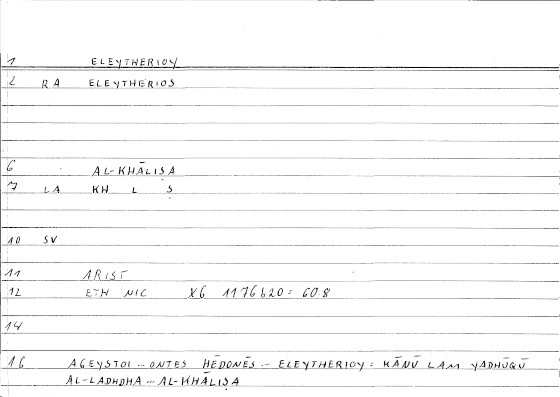 1 ELEYTHERIOY
2 RA ELEYTHERIOS
6 AL-KHĀLIṢA
7 LA KH L Ṣ
10 SV
11 ARIST
12 ETH NIC X6 1176b20 = 60.8
14
16 AGEYSTOI -- ONTES HĒDONĒS -- ELEYTHERIOY = KĀNŪ LAM YADHŪQŪ
AL-LADHDHA -- AL-KHĀLIṢA